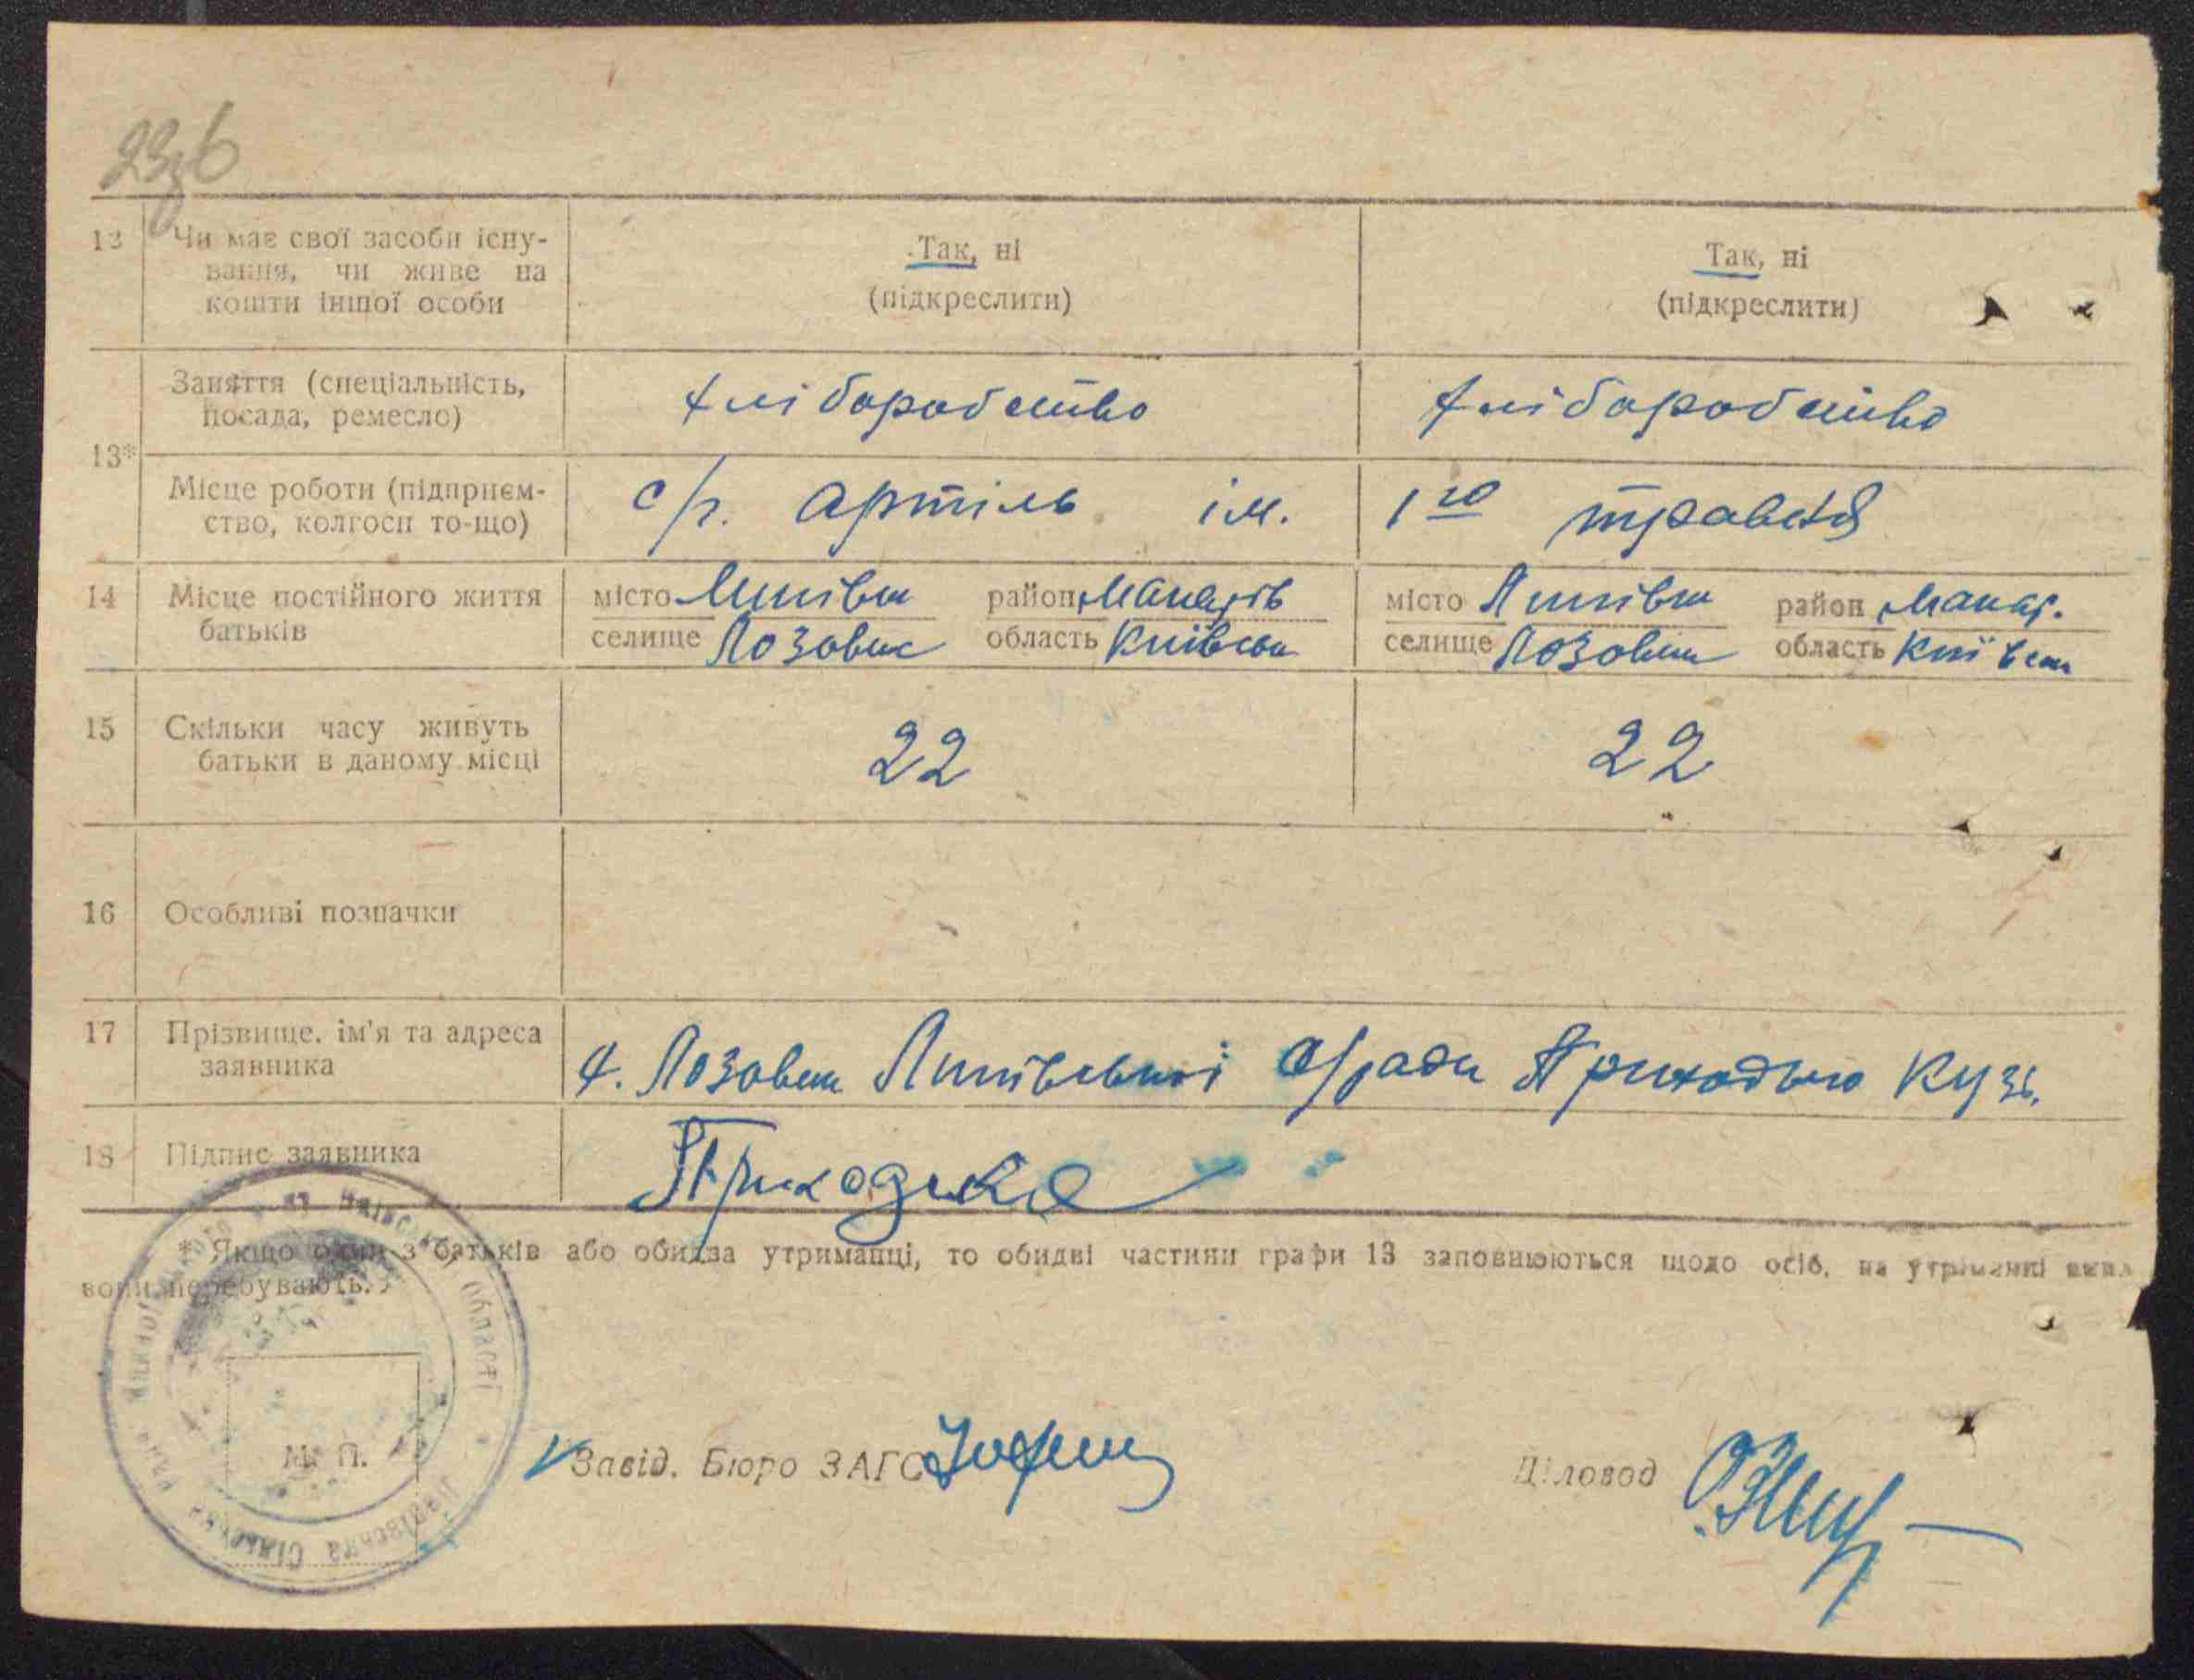 12 Чи має свої засоби існу-
вання, чи живе на
кошти іншої особи
Так, ні
(підкреслити)
Так, ні
(підкреслити)
13*
Заняття (спеціальність,
посада, ремесло)
хліборобство
хліборобство
Місце роботи (підприєм-
ство, колгосп то-що)
с/г. артіль ім.
1го травня
14 Місце постійного життя
батьків
місто Липівка район Макарів
селище Лозовик область Київська
місто Липівка район Макар.
селище Лозовик область Київська
15 Скільки часу живуть
батьки в даному місці
22
22
16 Особливі позначки
17 Прізвище, ім'я та адреса
заявника
х. Лозовик Липівської с/ради Приходько Кузь.
18 Підпис заявника
Приходько
* Якщо один з батьків або обидва утриманці, то обидві частини графи 13 заповнюються щодо осіб, на утриманні яких
вони перебувають.
М. П.
Завід. Бюро ЗАГС
Діловод